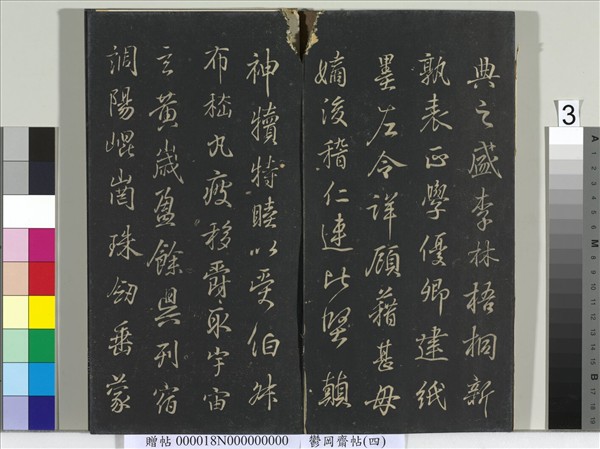 典之盛李林梧桐新
孰表正學優卿建紙
墨左令詳顧藉甚毋
嫡後稽仁連比堅顛
神犢特睦以受伯
布嵇丸疲移爵取宇宙
玄黃歲盈餘列宿
調陽崐崗珠劒垂蒙
3
贈帖 000018N000000000 鬱岡齋帖(四)